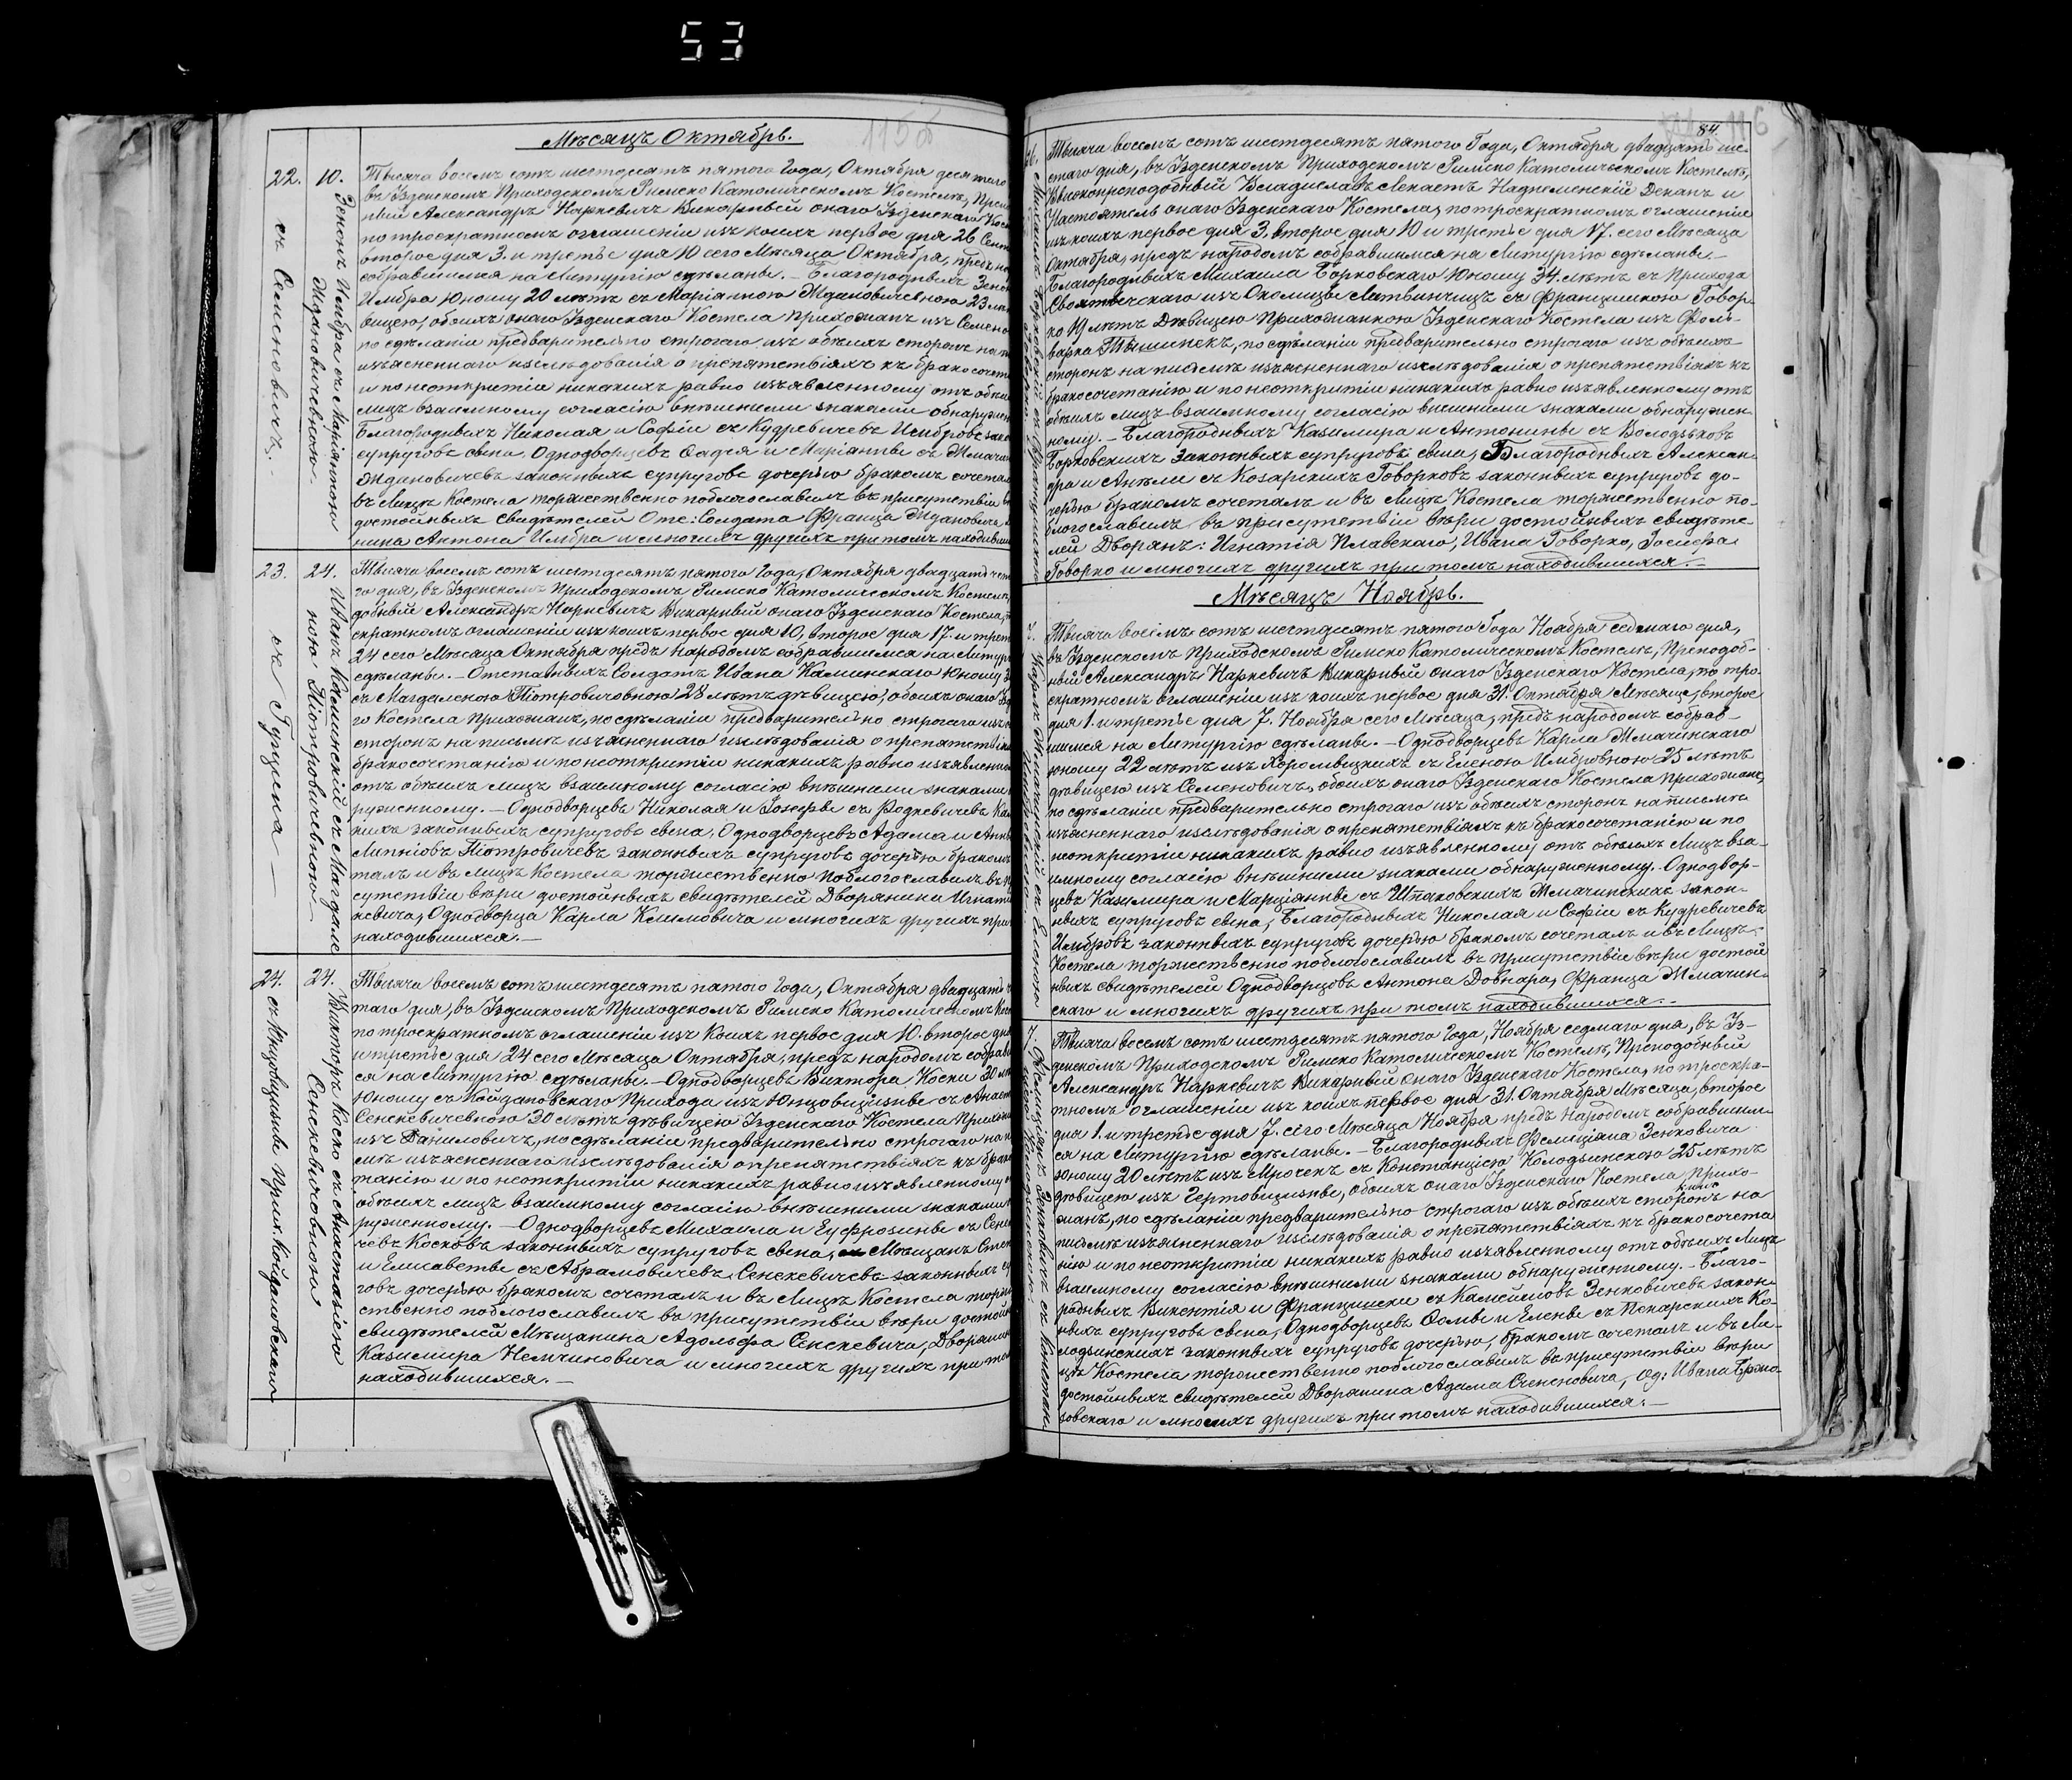 53
115б
Мѣсяцъ Октябрь.
22. 10. Зенонъ Имбра съ Маріянною Ждановичевною
съ Семеновичъ.
Тысяча восемъ сотъ шестдесятъ пятого Года, Октября десятаго
въ Узденскомъ Приходскомъ Римско Католическомъ Костелѣ, Препо
ный Александръ Наркевичъ Викарный онаго Узденскаго Кос
по троекратномъ оглашеніи изъ коихъ первое дня 26 Сент
второе дня 3. и третье дня 10 сего Мѣсяца Октября, предъ на
собравшимся на Литургію сдѣланы. – Благородныхъ Зено
Имбра Юношу 20 лѣтъ съ Маріянною Ждановичевною 23 лѣ
вицею, обоихъ онаго Узденскаго Костела Прихожанъ изъ Семено
по сдѣланіи предварительно строгаго изъ обѣихъ сторонъ на п
изъясненнаго изслѣдованія о препятствіяхъ къ бракосочет
и по неоткрытіи никакихъ равно изъявленному отъ обѣи
лицъ взаимному согласію внѣшними знаками обнаружен
Благородныхъ Николая и Софіи съ Кудревичевъ Имбровъ зако
супруговъ сына, Однодворцевъ Фадея и Маріанны съ Тмачин
Ждановичевъ законныхъ супруговъ дочерью бракомъ сочетал
въ Лицѣ Костела торжественно поблогославилъ въ присутствіи в
достойныхъ Свидѣтелей Отс: Солдата Франца Ждановича
нина Антона Имбра и многихъ другихъ при томъ находивш
23. 24. Иванъ Каминскій съ Магдале
ною Піотровичевною
съ Гурщека –
Тысяча восемъ сотъ шестдесятъ пятого Года, Октября двадцать чет
го дня, въ Узденскомъ Приходскомъ Римско Католическомъ Костелѣ,
добный Александръ Наркевичъ Викарный онаго Узденскаго Костела, п
екратномъ оглашеніи изъ коихъ первое дня 10, второе дня 17. и трет
24 сего Мѣсяца Октября предъ Народомъ собравшимся на Литург
сдѣланы. – Отставныхъ Солдатъ Ивана Каминскаго Юношу
съ Магдаленою Піотровичовною 28 лѣтъ дѣвицею, обоихъ онаго Уз
го Костела Прихожанъ, по сдѣланіи предварительно строгаго изъ
сторонъ на письмѣ изъясненнаго изслѣдованія о препятствія
бракосочетанію и по неоткрытіи никакихъ равно изъявленно
отъ обѣихъ лицъ взаимному согласію внѣшними знаками
руженному. – Однодворцевъ Николая и Іозефы съ Родкевичевъ Ка
кихъ законныхъ супруговъ сына, Однодворцевъ Адама и Анны
Липнiовъ Піотровичевъ законныхъ супруговъ дочерью бракомъ
талъ и въ лицѣ Костела торжественно поблогославилъ въ п
сутствіи вѣры достойныхъ свидѣтелей Дворянина Игнат
кевича, Однодворца Карла Климовича и многихъ другихъ при
находившихся. –
24. 24. Викторъ Коско съ Анастазіею
Сенкевичовною
съ Янцовщизны Прих. Койдановскаго
Тысяча восемъ сотъ шестдесятъ пятого Года, Октября двадцать ч
таго дня, въ Узденскомъ Приходскомъ Римско Католическомъ Кос
по троекратномъ оглашеніи изъ Коихъ первое дня 10. второе дня
и третье дня 24 сего Мѣсяца Октября, предъ народомъ собрав
ся на Литургію сдѣланы. – Однодворцевъ Виктора Коски 30 лѣ
Юношу съ Койдановскаго Прихода изъ Янцовщизны съ Анаст
Сенкевичевною 30 лѣтъ дѣвицею Узденскаго Костела Прихож
изъ Даниловичъ, по сдѣланіи предварительно строгаго на п
смѣ изъясненнаго изслѣдованія о препятствіяхъ къ брако
танію и по неоткрытіи никакихъ равно изъявленному
обѣихъ лицъ взаимному согласію внѣшними знаками
руженному. – Однодворцевъ Михаила и Еуфрозины съ Сен
чевъ Косковъ законныхъ супруговъ сына, Мѣщанъ Степ
и Елисаветы съ Абрамовичевъ Сенкевичевъ законныхъ су
говъ дочерью бракомъ сочеталъ и въ Лицѣ Костела торж
ственно поблогославилъ въ присутствіи вѣры достой
свидѣтелей Мѣщанина Адольфа Сенкевича, Дворянин
Казимира Немчиновича и многихъ другихъ при то
находившихся. –
84.
116
Тысяча восемъ сотъ шестдесятъ пятого Года, Октября двадцать ше
стаго дня, въ Узденскомъ Приходскомъ Римско Католическомъ Костелѣ,
Высокопреподобный Владиславъ Надніеменскій Деканъ и
Настоятель онаго Узденскаго Костела, по троекратномъ оглашеніи
изъ коихъ первое дня 3. второе дня 10 и третье дня 17. сего Мѣсяца
Октября, предъ народомъ собравшимся на Литургію сдѣланы. –
Благородныхъ Михаила Борковскаго Юношу 34 лѣтъ съ Прихода
изъ Околицы Литвинчицъ съ Францишкою Говор
ко 19 лѣтъ Дѣвицею Прихожанкою Узденскаго Костела изъ Фоль-
варка Тышинекъ, по сдѣланіи предварительно строгаго изъ обѣихъ
сторонъ на письмѣ изъясненнаго изслѣдованія о препятствіяхъ къ
бракосочетанію и по неоткрытіи никакихъ равно изъявленному отъ
обѣихъ лицъ взаимному согласію внѣшними знаками обнаружен-
ному. – Благородныхъ Казимира и Антонины съ Володзьковъ
Борковскихъ Законныхъ супруговъ сына, Благородныхъ Алексан-
дра и Анѣли съ Козарскихъ Говорковъ законныхъ супруговъ до-
черью бракомъ сочеталъ и въ Лицѣ Костела торжественно по-
блогославилъ въ присутствіи вѣры достойныхъ свидѣте
лей Дворянъ: Игнатія Плавскаго, Ивана Говорко, Іосифа
Говорко и многихъ другихъ при томъ находившихся. –
Мѣсяцъ Ноябрь.
7.
Тысяча восемъ сотъ шестдесятъ пятого Года Ноября седмаго дня,
въ Узденскомъ Приходскомъ Римско Католическомъ Костелѣ, Преподоб-
ный Александръ Наркевичъ Викарный онаго Узденскаго Костела, по тро-
екратномъ оглашеніи изъ коихъ первое дня 31. Октября Мѣсяца, второе
дня 1. и третье дня 7. Ноября сего Мѣсяца, предъ народомъ собрав-
шимся на Литургію сдѣланы. – Однодворцевъ Карла Тмачинскаго
юношу 22 лѣтъ изъ Хоромицкихъ съ Еленою Имбровною 25 лѣтъ
дѣвицею изъ Семеновичъ, обоихъ онаго Узденскаго Костела Прихожанъ,
по сдѣланіи предварительно строгаго изъ обѣихъ сторонъ на письмѣ
изъясненнаго изслѣдованія о препятствіяхъ къ бракосочетанію и по
неоткрытіи никакихъ равно изъявленному отъ обѣихъ Лицъ вза-
имному согласію внѣшними знаками обнаруженному. Однодвор-
цевъ Казимира и Марціянны съ Штаковскихъ Тмачинскихъ закон-
ныхъ супруговъ сына, Благородныхъ Николая и Софіи съ Кудревичевъ
Имбровъ законныхъ супруговъ дочерью бракомъ сочеталъ и въ Лицѣ
Костела торжественно поблогославилъ въ присутствіи вѣры достой
ныхъ свидѣтелей Однодворцовъ Антона Довнара, Франца Тмачин-
скаго и многихъ другихъ при томъ находившихся. –
7.
Тысяча восемъ сотъ шестдесятъ пятого Года, Ноября седмаго дня, въ Уз-
денскомъ Приходскомъ Римско Католическомъ Костелѣ, Преподобный
Александръ Наркевичъ Викарный онаго Узденскаго Костела, по троекра-
тномъ оглашеніи изъ коихъ первое дня 31. Октября Мѣсяца, второе
дня 1. и третье дня 7. сего Мѣсяца Ноября предъ Народомъ собравшим-
ся на Литургію сдѣланы. – Благородныхъ Фелиціяна Зенковича
юношу 20 лѣтъ изъ Мрочекъ съ Констанціею Колодзинскою 25 лѣтъ
дѣвицею изъ Чертовщизны, обоихъ онаго Узденскаго Костела Прихо-
жанъ, по сдѣланіи предварительно строгаго изъ обѣихъ сторонъ на
письмѣ изъясненнаго изслѣдованія о препятствіяхъ къ бракосочета
нію и по неоткрытіи никакихъ равно изъявленному отъ обѣихъ Лицъ
взаимному согласію внѣшними знаками обнаруженному. – Благо-
родныхъ Викентія и Францишки съ Зенковичевъ закон-
ныхъ супруговъ сына, Однодворцевъ Фомы и Елены съ Пекарскихъ Ко-
лодзинскихъ законныхъ супруговъ дочерью, бракомъ сочеталъ и въ Ли-
цѣ Костела торжественно поблогославилъ въ присутствіи вѣры
достойныхъ свидѣтелей Дворянина Адама, Од: Ивана
и многихъ другихъ при томъ находившихся. –